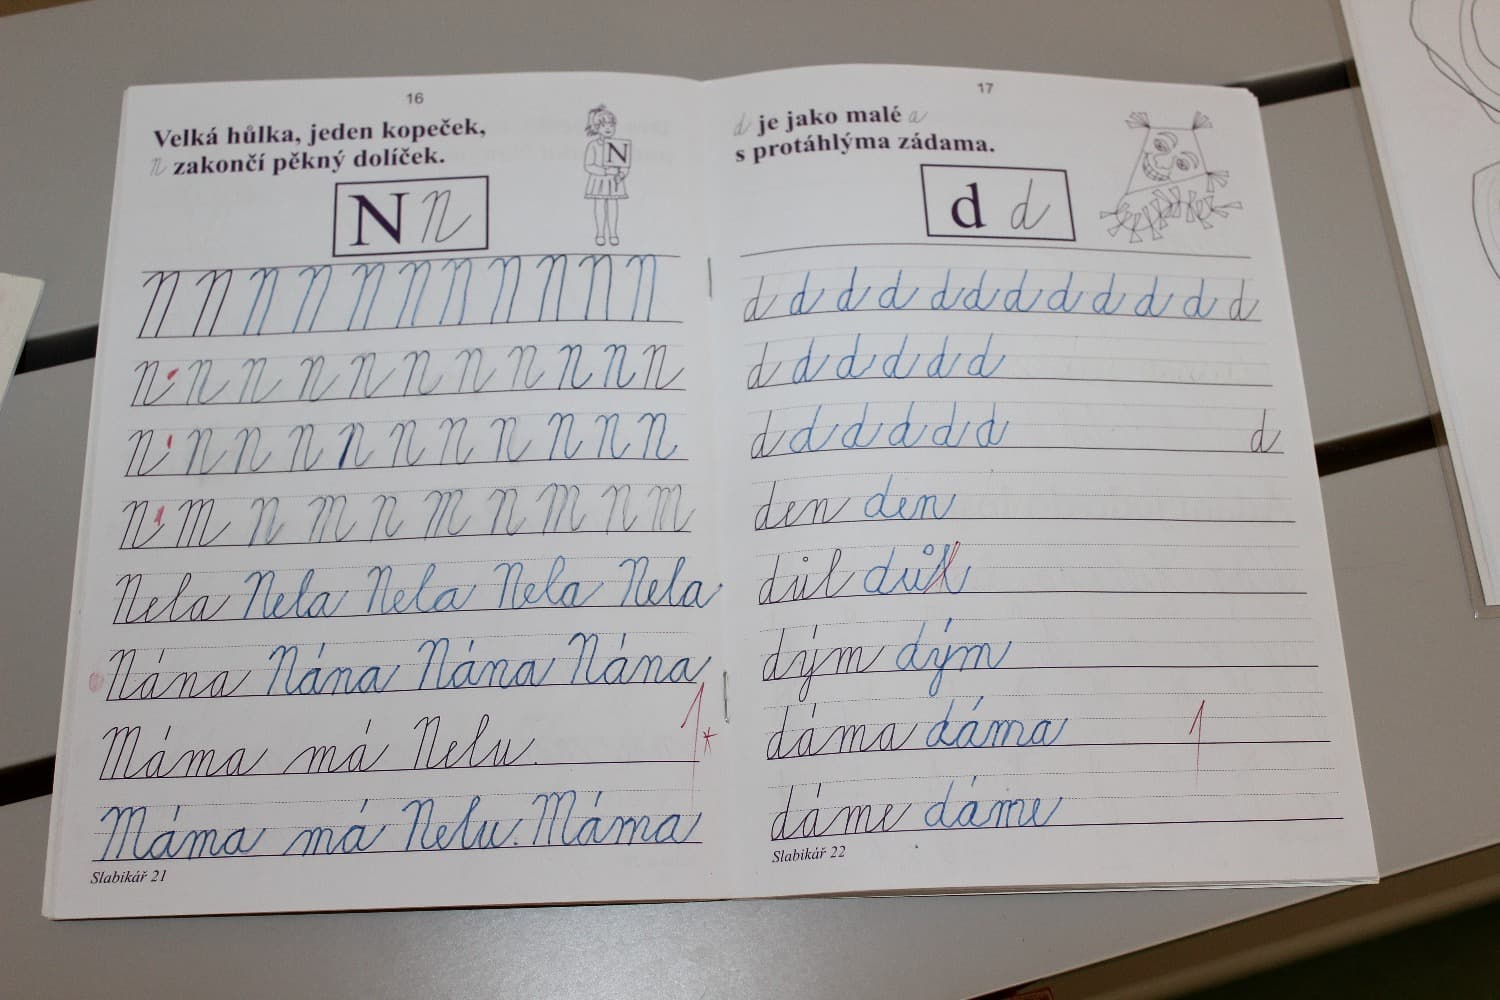 16
Velká hůlka, jeden kopeček,
N zakončí pěkný dolíček.
N
N N
N N N N N N N N N N N
N N N N N N N N N N N
N N N N N N N N N N N
N M N M N M N M N M
Nela Nela Nela Nela Nela
Nána Nána Nána Nána
Máma má Nelu.
1*
Máma má Nelu. Máma
Slabikář 21
17
d je jako malé a
s protáhlýma zádama.
d d
d d d d d d d d d d d d
d d d d d d
d d d d d d d
den den
důl důl
dým dým
dáma dáma
1
dáme dáme
Slabikář 22